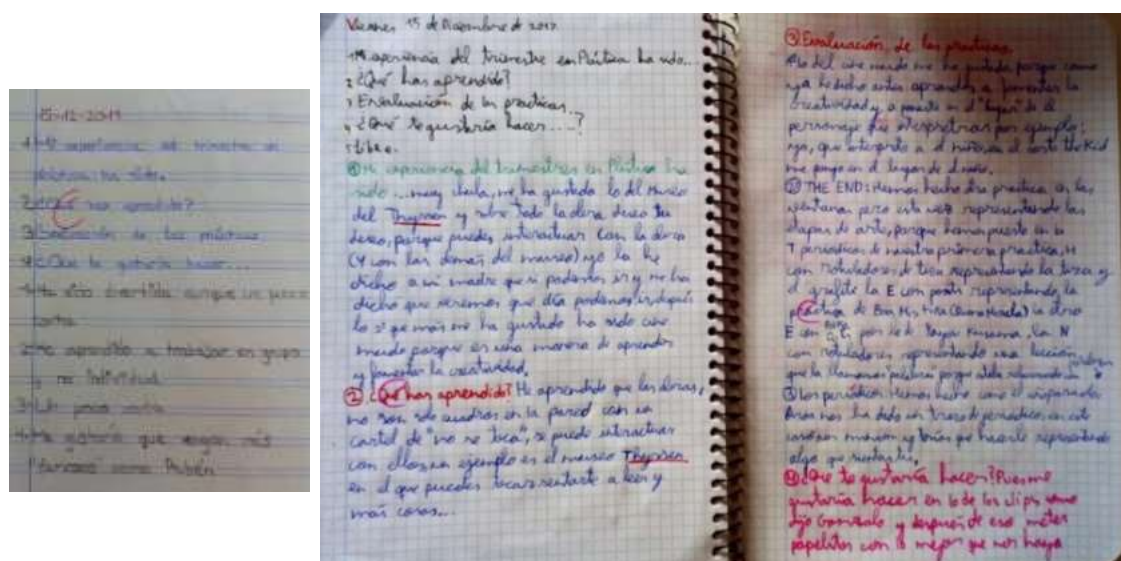 15-12-2017
1 Mi experiencia del trimestre en
plástica ha sido...
2 ¿Qué has aprendido?
3 Evaluación de las prácticas
4 ¿Que te gustaría hacer...
1 Ha sido divertida aunque un poco
corta
2 He aprendido a trabajar en grupo
y no individual
3 Un poco corta
4 Me gustaría que vengan más
famosos como Rubén
Viernes 15 de Diciembre de 2017
1 Mi experiencia del trimestre en Plástica ha sido...
2 ¿Qué has aprendido?
3 Evaluación de las practicas
4 ¿Qué te gustaría hacer....?
5 Libre.
① Mi experiencia del trimestres en Plástica ha
sido ... muy chula, me ha gustado lo del museo
del Thyssen y sobre todo la obra deseo tu
deseo, porque puedes interactuar con la obra
(Y con las demás del museo) yo la he
dicho a mi madre que si podemos ir y me ha
dicho que veremos que día podemos ir, después
lo que más me ha gustado ha sido cine
mudo porque es una manera de aprender
y fomentar la creatividad.
② ¿Qué has aprendido? He aprendido que las obras,
no son solo cuadros en la pared con un
cartel de "no se toca", se puede interactuar
con ellas, un ejemplo es el museo Thyssen
en el que puedes tocar, sentarte a leer y
más cosas...
③ Evaluación de las practicas
A lo del cine mudo me ha gustado porque como
ya he dicho antes aprendes a fomentar la
creatividad y a ponerte en el "lugar" de el
personaje que interpretas por ejemplo:
yo, que interpreto a el niño en el corto the Kid
me pongo en el lugar de el niño.
THE END: Hemos hecho otra practica en las
ventanas pero esta vez representando las
etapas de arte, porque hemos puesto en la
T periodicos de nuestra primera practica, H
con rotuladores de tiza representando la tiza y
el grafite la E con posti representando la
práctica de Boa Mistura la otra
E con por lo de Yayoi Kusama, la N
con rotuladores representando una lección
que la llamamos porque
Los periódicos: Hemos hecho como el
nos ha dado un trozo de periodico, en
y tenías que hacerlo representando
algo que sientas tú,
④ ¿Que te gustaría hacer? Pues me
gustaría hacer en lo de los clips como
dijo Gonzalo y después de eso meter
papelitos con lo mejor que nos haya